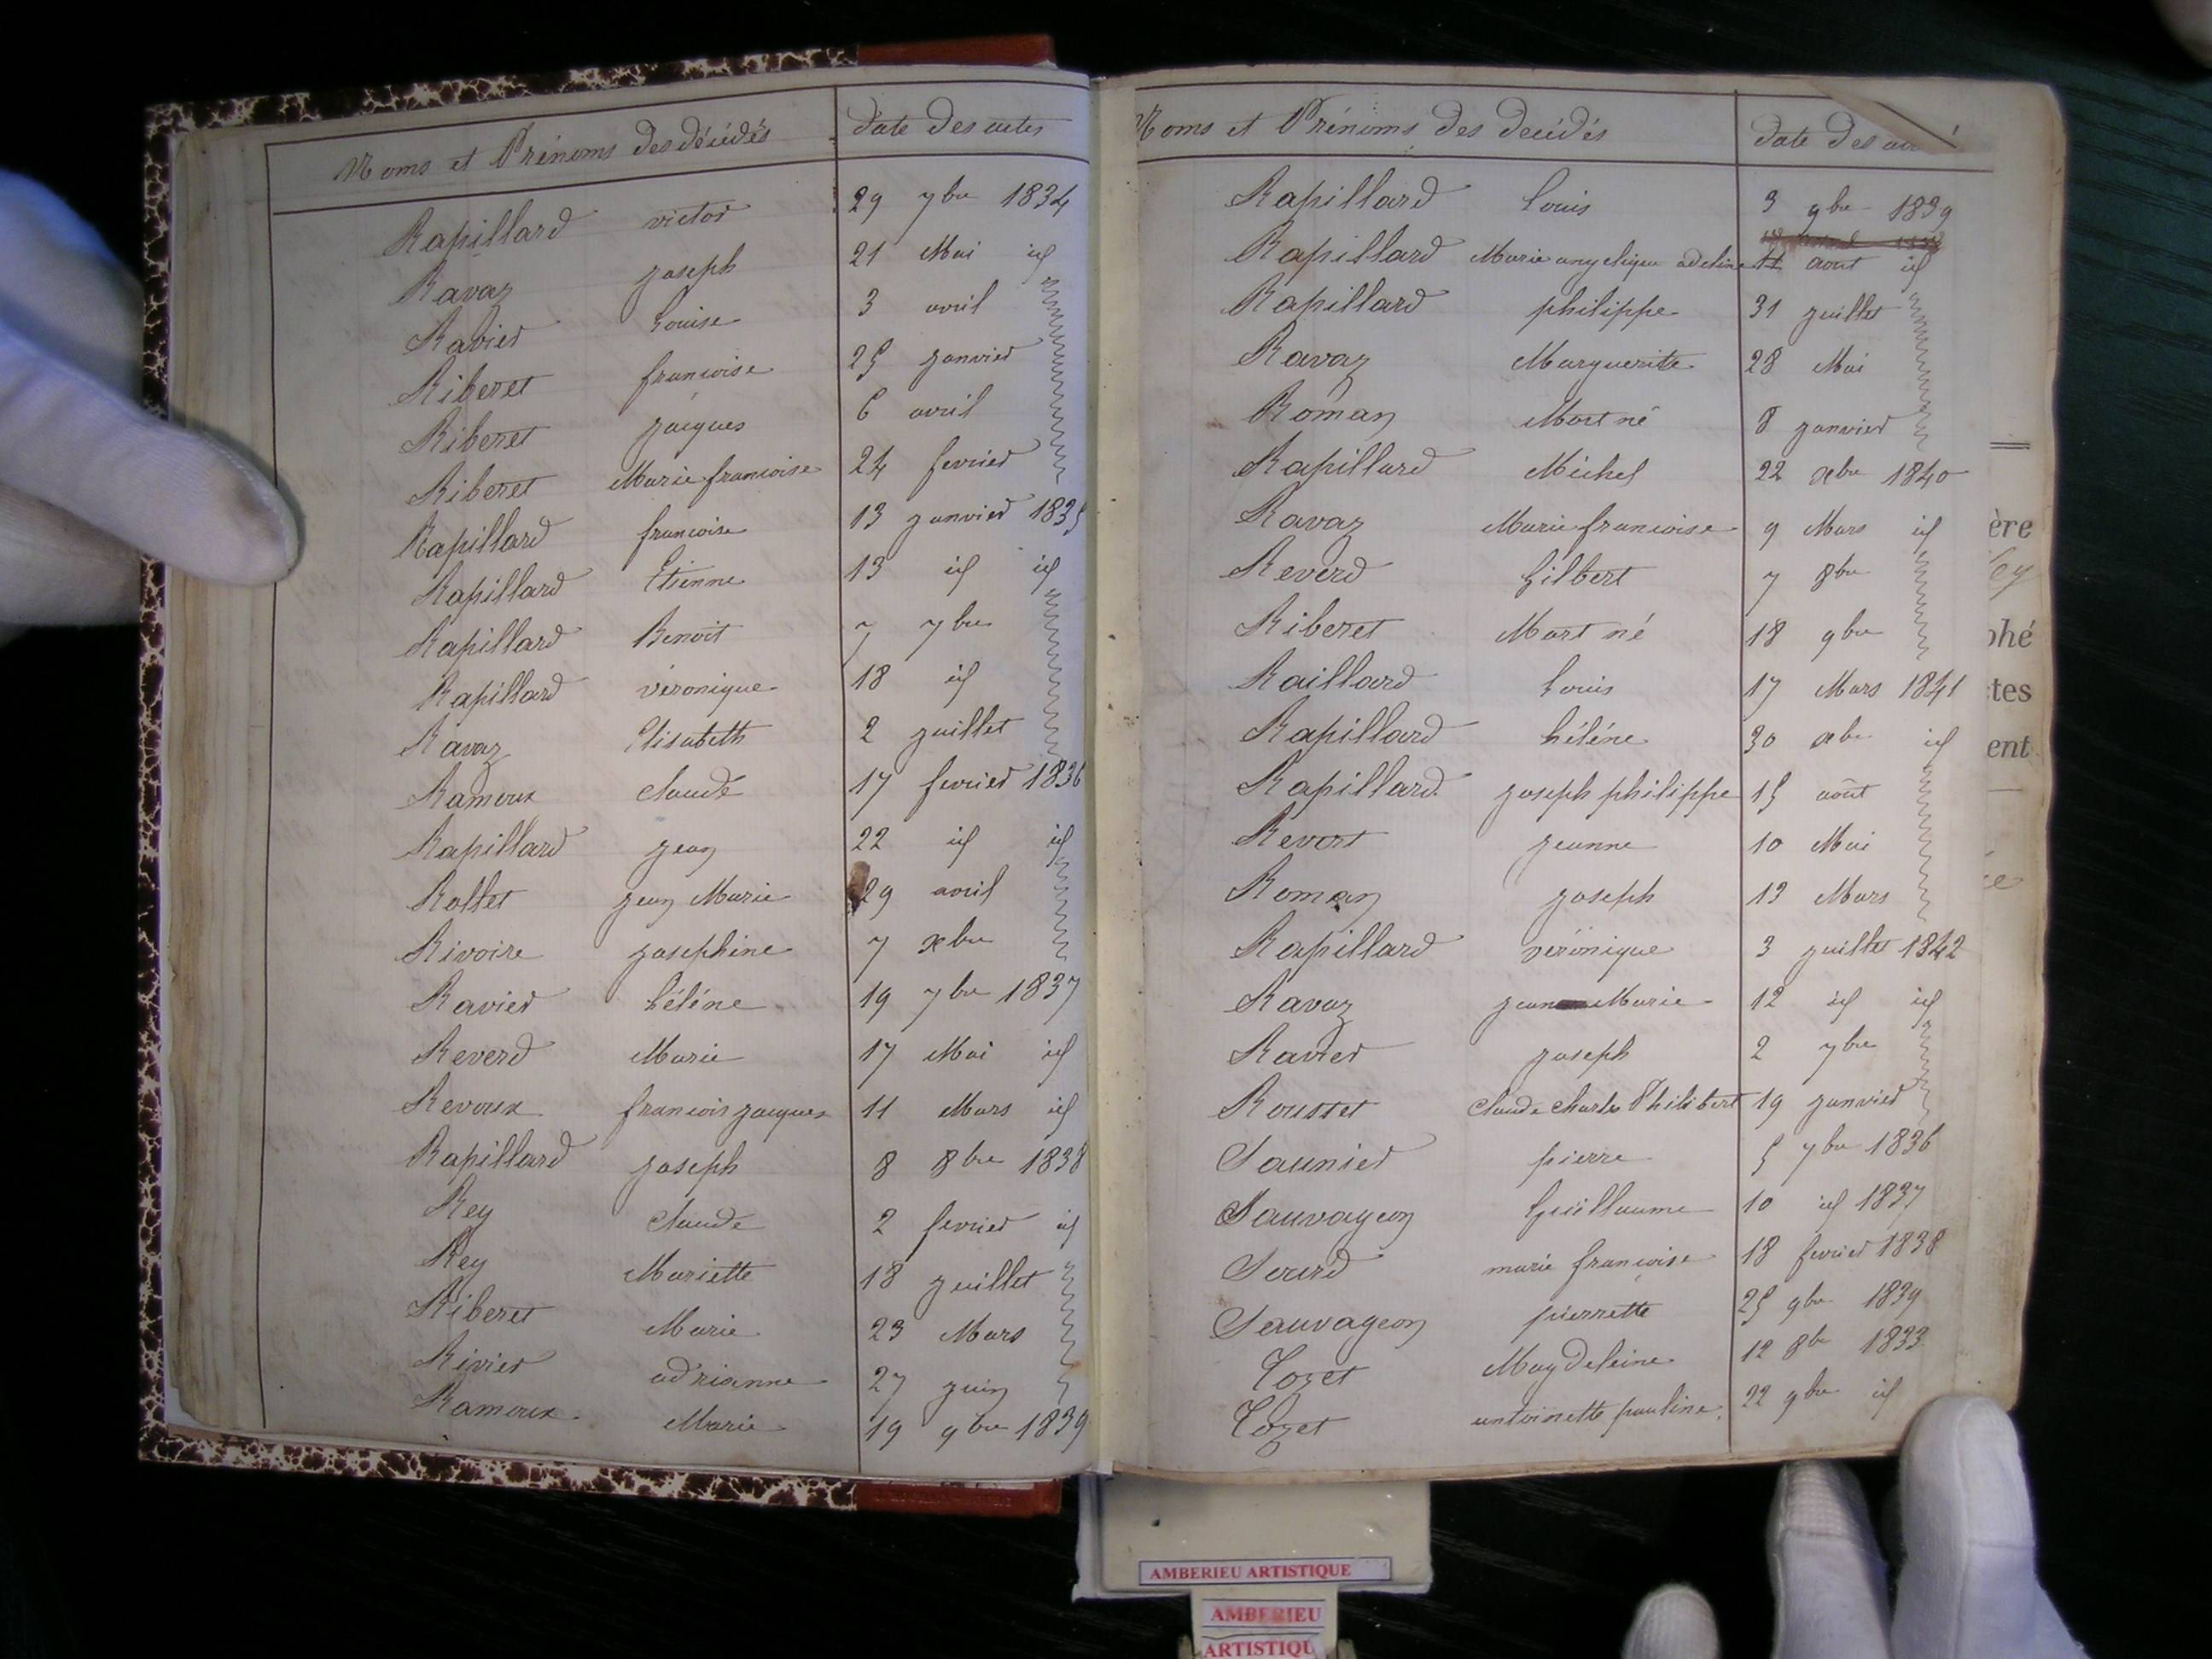 Noms et Prénoms des décédés date des actes
Rapillard victor 29 7bre 1834
Ravaz joseph 21 Mai id
Ravier Louise 3 avril
Riberet francoise 25 janvier
Riberet jacques 6 avril
Riberet Marie francoise 24 fevrier
Rapillard francoise 13 janvier 1835
Rapillard Etienne 13 id id
Rapillard Benoit 7 7bre
Rapillard véronique 18 id
Ravaz Elisabeth 2 juillet
Ramoux claude 17 fevrier 1836
Rapillard jean 22 id id
Rollet jean Marie 29 avril
Rivoire josephine 7 xbre
Ravier héléne 19 7bre 1837
Reverd Marie 17 Mai id
Revoux francois jacques 11 Mars id
Rapillard joseph 8 8bre 1838
Rey claude 2 fevrier id
Rey Mariette 18 juillet
Riberet Marie 23 Mars
Rivier adrianne 27 juin
Ramoux Marie 19 9bre 1839
Noms et Prénoms des decédés date des
Rapillard Louis 3 9bre 1839
Rapillard Marie angelique adeline 11 aout id
Rapillard philippe 31 juillet
Ravaz Marguerite 28 Mai
Roman Mort né 8 janvier
Rapillard Michel 22 xbre 1840
Ravaz Marie francoise 9 Mars id
Reverd Gilbert 7 8bre
Riberet Mort né 18 9bre
Raillard Louis 17 Mars 1841
Rapillard héléne 30 xbre id
Rapillard joseph philippe 15 août
Revert jeanne 10 Mai
Roman joseph 13 Mars
Rapillard véronique 3 juillet 1842
Ravaz jean Marie 12 id id
Ravier joseph 2 7bre
Rousset claude charles Philibert 19 janvier
Saunier pierre 5 7bre 1836
Sauvageon Guillaume 10 id 1837
Serurd marie françoise 18 fevrier 1838
Sauvageon pierrette 25 9bre 1839
Tozet Magdeleine 12 8bre 1833
Tozet antoinette pauline 22 9bre id
ère
ey
phé
ctes
ent
AMBERIEU ARTISTIQUE
AMBERIEU
ARTISTIQU